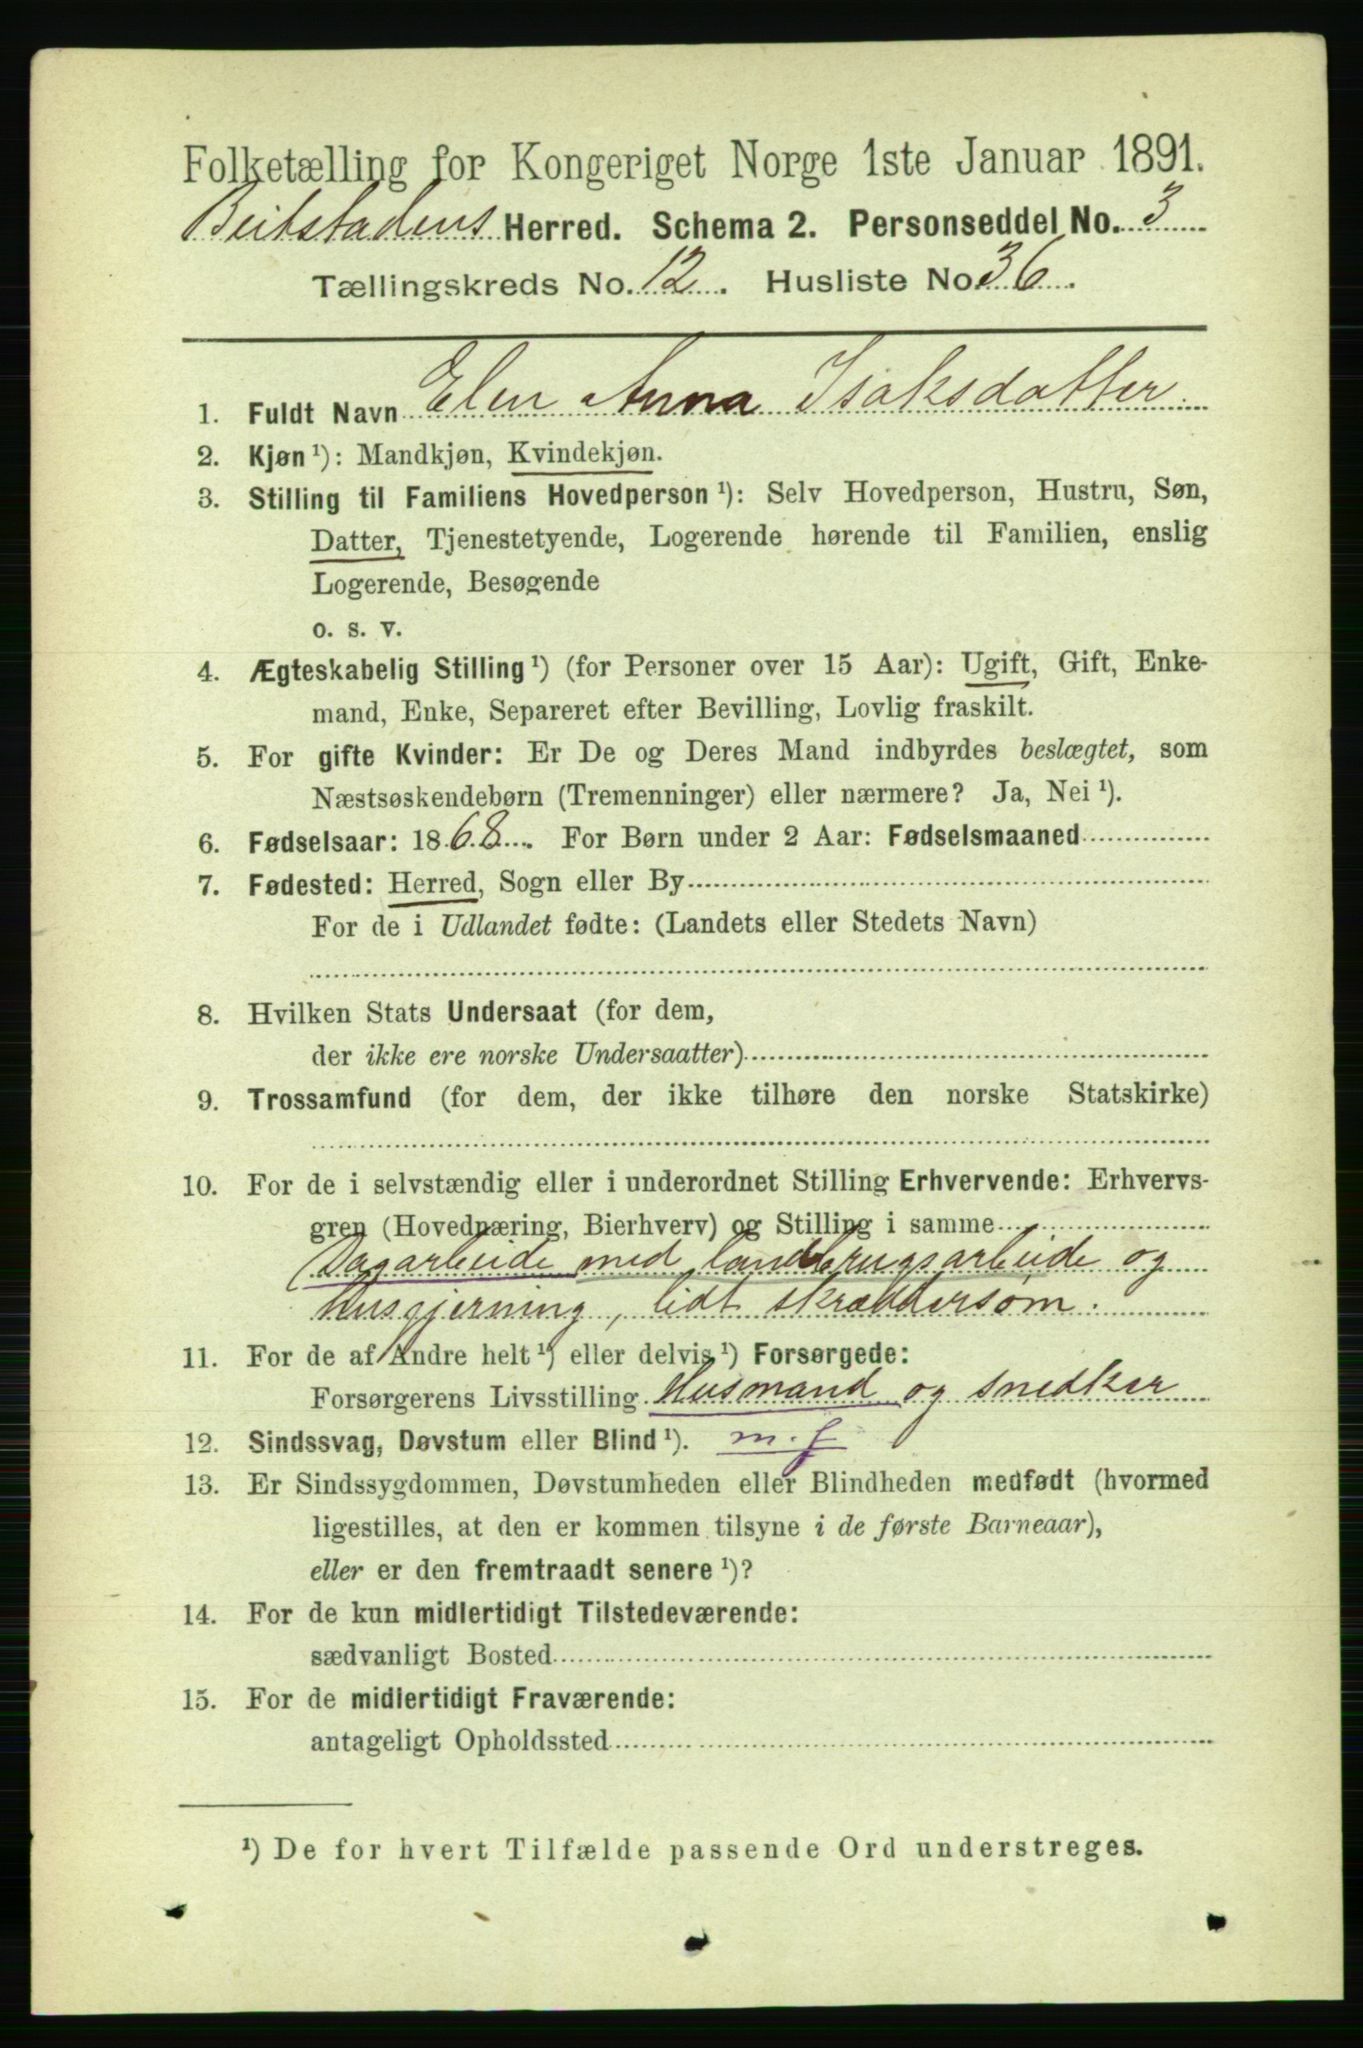 Folketælling for Kongeriget Norge 1ste Januar 1891.
Beitstadens Herred. Schema 2. Personseddel No. 3
Tællingskreds No. 12. Husliste No. 36.
1. Fuldt Navn Elen Anna Isaksdatter
2. Kjøn ¹): Mandkjøn, Kvindekjøn.
3. Stilling til Familiens Hovedperson ¹): Selv Hovedperson, Hustru, Søn,
Datter, Tjenestetyende, Logerende hørende til Familien, enslig
Logerende, Besøgende
o. s. v.
4. Ægteskabelig Stilling ¹) (for Personer over 15 Aar): Ugift, Gift, Enke-
mand, Enke, Separeret efter Bevilling, Lovlig fraskilt.
5. For gifte Kvinder: Er De og Deres Mand indbyrdes beslægtet, som
Næstsøskendebørn (Tremenninger) eller nærmere? Ja, Nei ¹).
6. Fødselsaar: 1868. For Børn under 2 Aar: Fødselsmaaned
7. Fødested: Herred, Sogn eller By
For de i Udlandet fødte: (Landets eller Stedets Navn)
8. Hvilken Stats Undersaat (for dem,
der ikke ere norske Undersaatter)
9. Trossamfund (for dem, der ikke tilhøre den norske Statskirke)
10. For de i selvstændig eller i underordnet Stilling Erhvervende: Erhvervs-
gren (Hovednæring, Bierhverv) og Stilling i samme
Dagarbeide med landbrugsarbeide og
Husgjerning, lidt skræddersøm.
11. For de af Andre helt ¹) eller delvis ¹) Forsørgede:
Forsørgerens Livsstilling Husmand og snedker
12. Sindssvag, Døvstum eller Blind ¹). m. f
13. Er Sindssygdommen, Døvstumheden eller Blindheden medfødt (hvormed
ligestilles, at den er kommen tilsyne i de første Barneaar),
eller er den fremtraadt senere ¹)?
14. For de kun midlertidigt Tilstedeværende:
sædvanligt Bosted
15. For de midlertidigt Fraværende:
antageligt Opholdssted
¹) De for hvert Tilfælde passende Ord understreges.